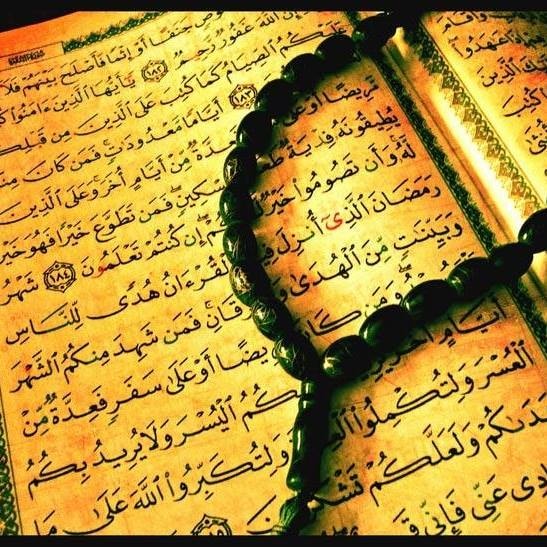 جَنَفًا أَوْ إِثْمًا فَأَصْلَحَ بَيْنَهُمْ فَلَا
إِنَّ اللَّهَ غَفُورٌ رَّحِيمٌ ١٨٢ يَٰٓأَيُّهَا الَّذِينَ ءَامَنُوا
عَلَيْكُمُ الصِّيَامُ كَمَا كُتِبَ عَلَى الَّذِينَ مِن قَبْلِكُ
١٨٣ أَيَّامًا مَّعْدُودَٰتٍ فَمَن كَانَ مِن
مَّرِيضًا أَوْ عَلَى دَّةٌ مِّنْ أَيَّامٍ أُخَرَ وَعَلَى الَّذِينَ
يُطِيقُونَهُ فِدْيَةٌ طَ سْكِينٍ فَمَن تَطَوَّعَ خَيْرًا فَهُوَ خَيْرٌ
لَّهُ وَأَن تَصُومُوا خَيْرٌ كُمْ إِن كُنتُمْ تَعْلَمُونَ ١٨٤ شَهْرُ
رَمَضَانَ الَّذِىٓ أُنزِلَ فِي الْقُرْءَانُ هُدًى لِّلنَّاسِ
وَبَيِّنَٰتٍ مِّنَ الْهُدَىٰ وَ قَانِ فَمَن شَهِدَ مِنكُمُ الشَّهْرَ
وَمَن كَا يضًا أَوْ عَلَىٰ سَفَرٍ فَعِدَّةٌ مِّنْ
أَيَّامٍ أُخَرَ يُر كُمُ الْيُسْرَ وَلَا يُرِيدُ بِكُمُ
الْعُسْرَ وَلِتُكْمِلُوا الْ وَلِتُكَبِّرُوا اللَّهَ عَلَىٰ مَا
دَىٰكُمْ وَلَعَلَّكُمْ تَشْ
ادِى عَنِّى فَإِنِّى قَ